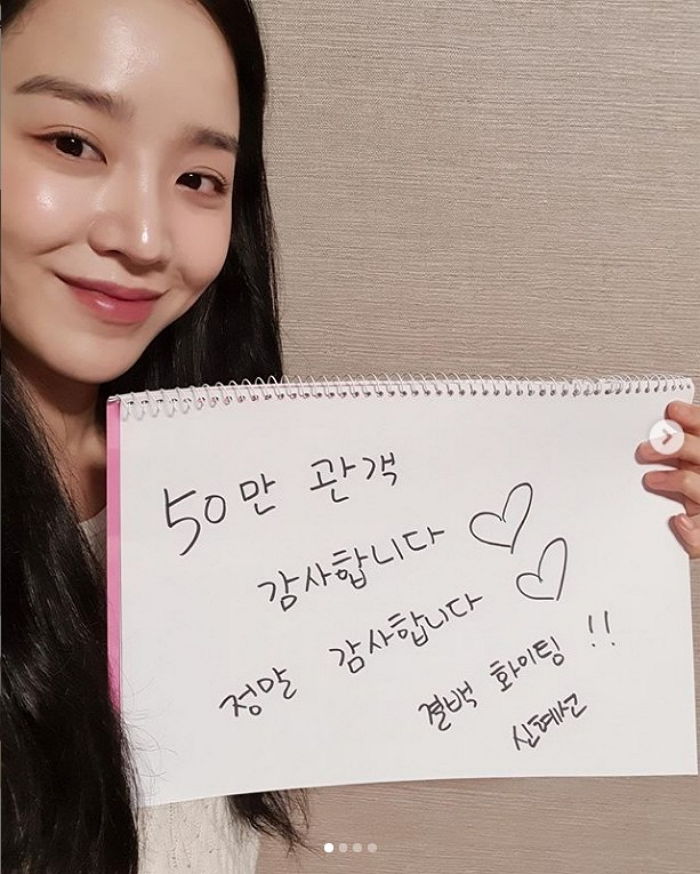 50만 관객
감사합니다 ♡
정말 감사합니다 ♡
결백 화이팅 !!
신혜선